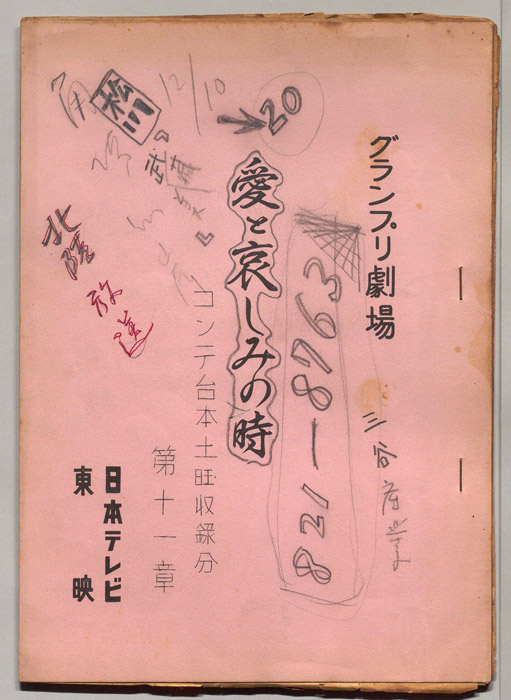 グランプリ劇場
三谷産業
愛と哀しみの時
コンテ台本土旺収録分
第十一章
日本テレビ
東映
821-8763
20
12/10
松川
北陸放送